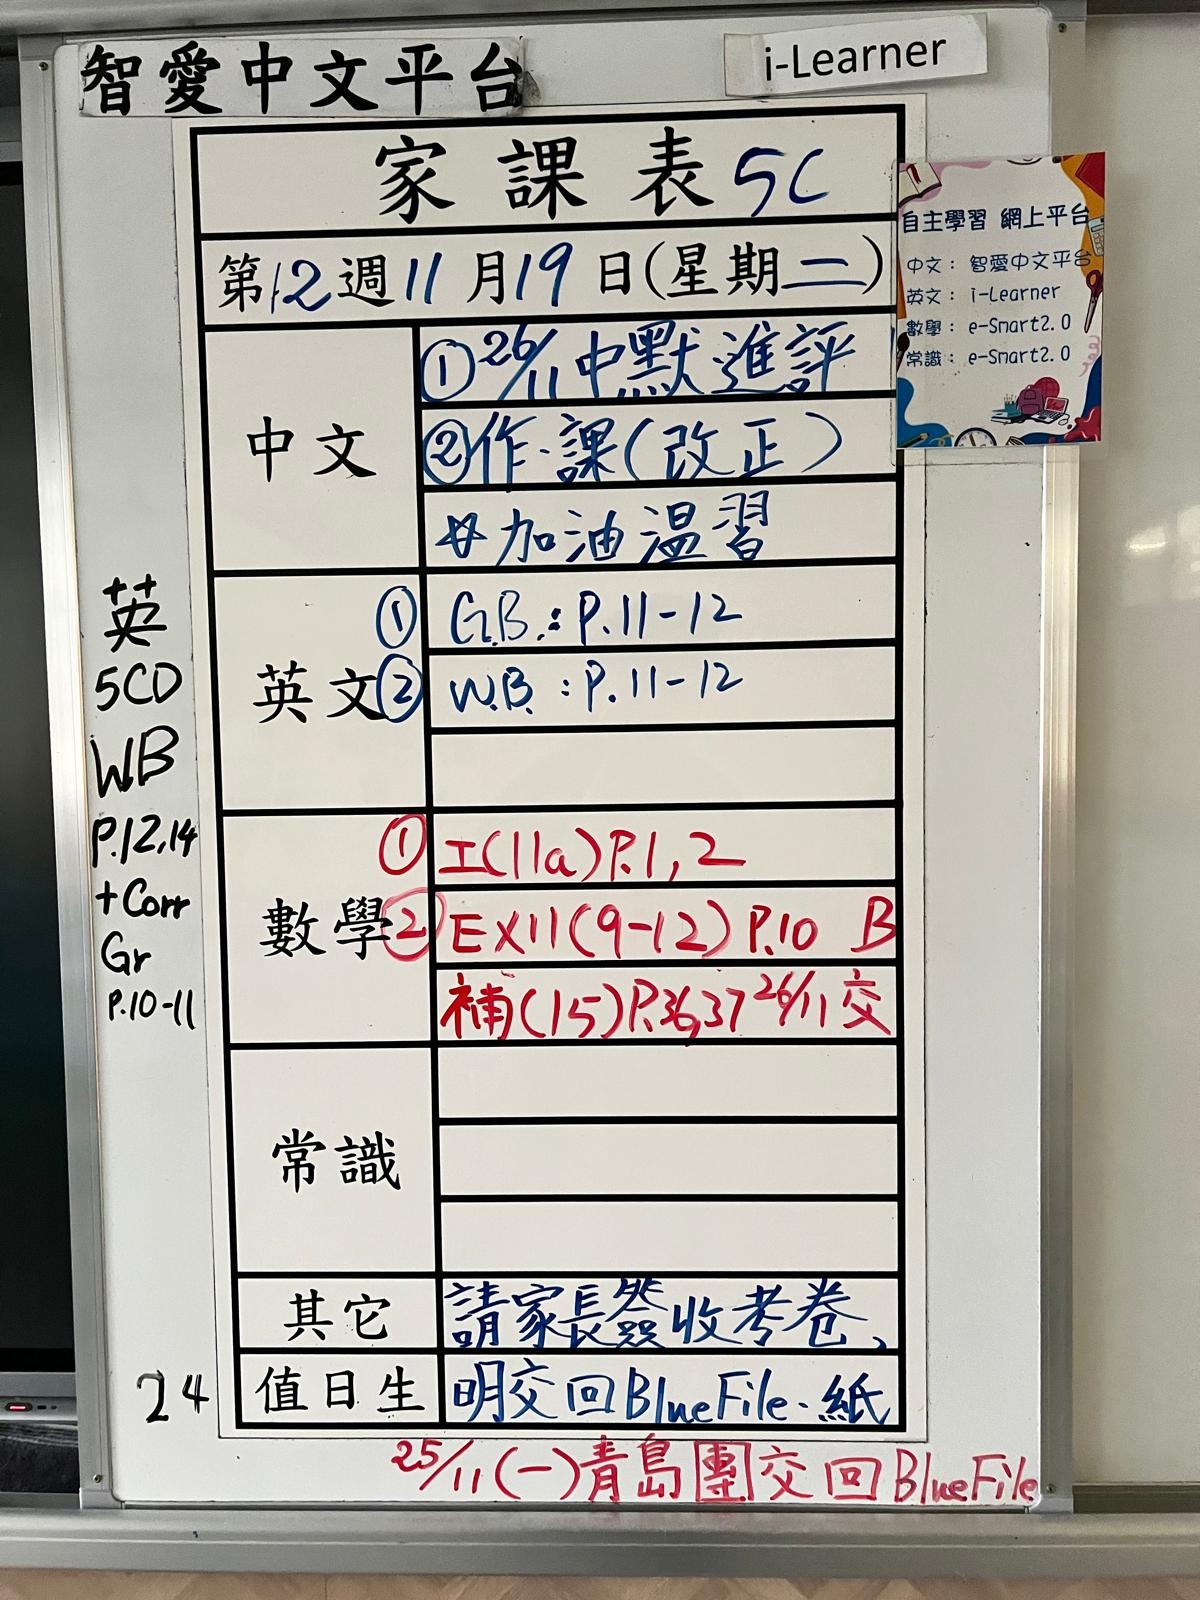 智愛中文平台
i-Learner
家課表 5C
第12週11月19日(星期二)
自主學習 網上平台
中文： 智愛中文平台
英文： i-Learner
數學： e-Smart2.0
常識： e-Smart2.0
中文
①26/11中默進評
②作.課(改正)
☆加油温習
英文
① G.B.:P.11-12
② W.B.:P.11-12
數學
① I(11a)P.1,2
② EX11(9-12) P.10 B
補(15)P.36,37 26/11交
常識
其它
請家長簽收考卷、
值日生
明交回BlueFile.紙
25/11(一)青島團交回BlueFile
英
5CD
WB
P.12,14
+Corr
Gr
P.10-11
24